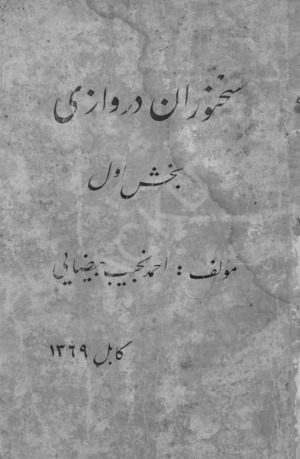 سخنوران دروازی
بخش اول
مولف: احمد نجیب بیضایی
کابل ۱۳۶۹